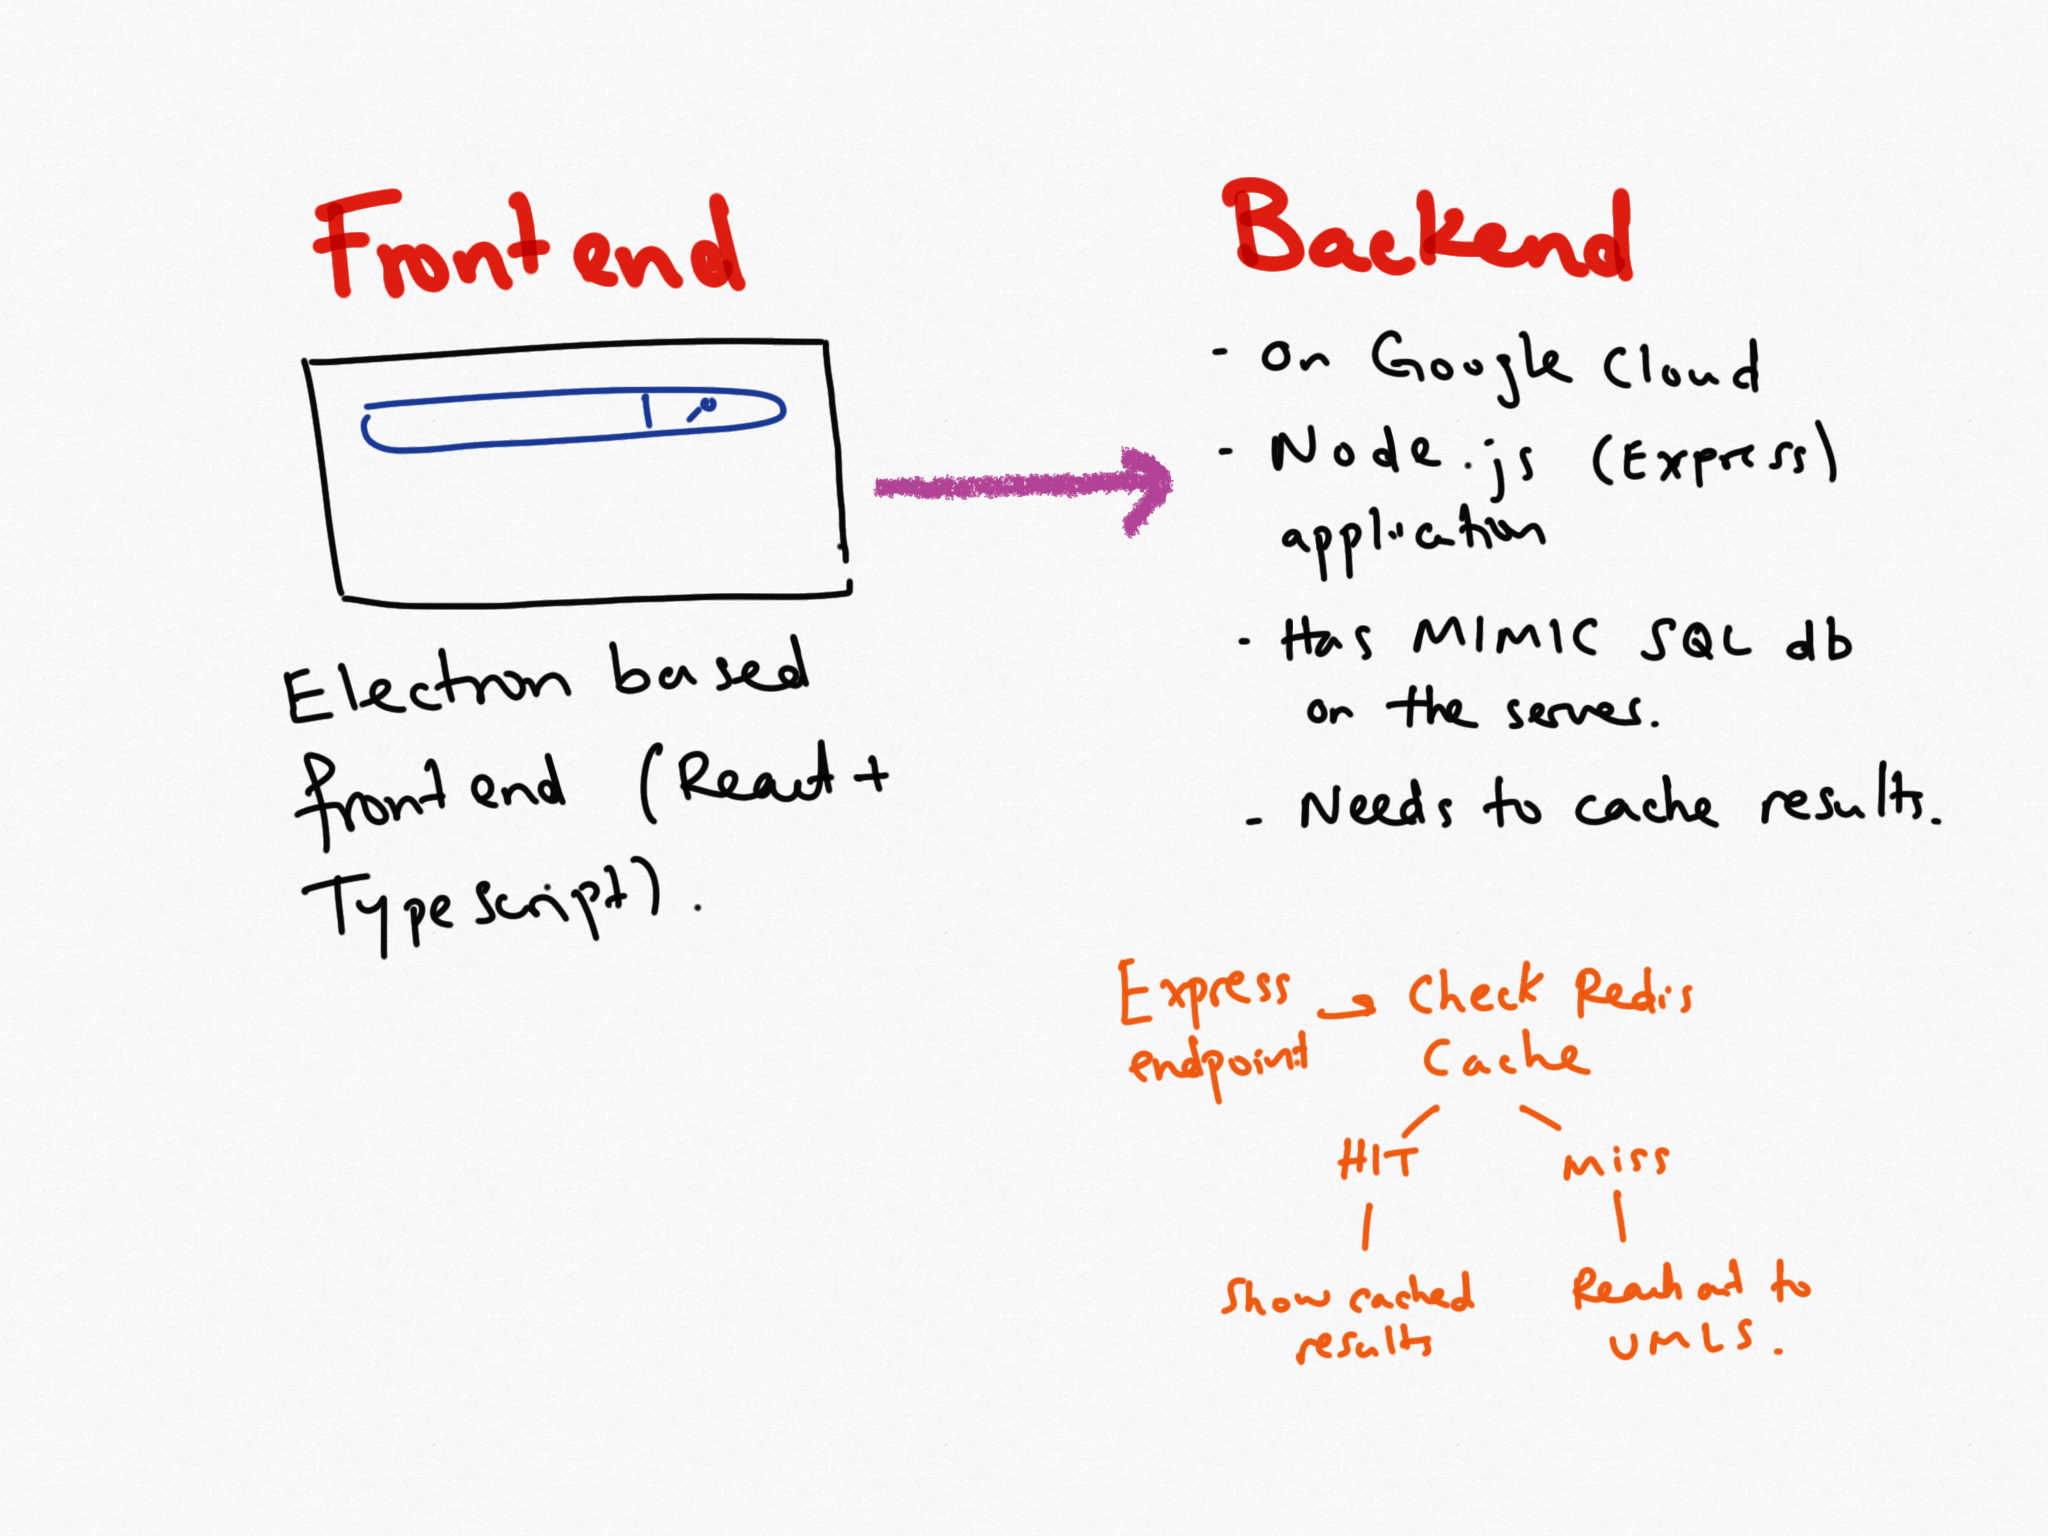 Frontend
Electron based
frontend (React +
Typescript).
Backend
- On Google Cloud
- Node.js (Express)
application
- Has MIMIC SQL db
on the server.
- Needs to cache results.
Express → Check Redis
endpoint Cache
HIT Miss
Show cached
results
Reach out to
UMLS.